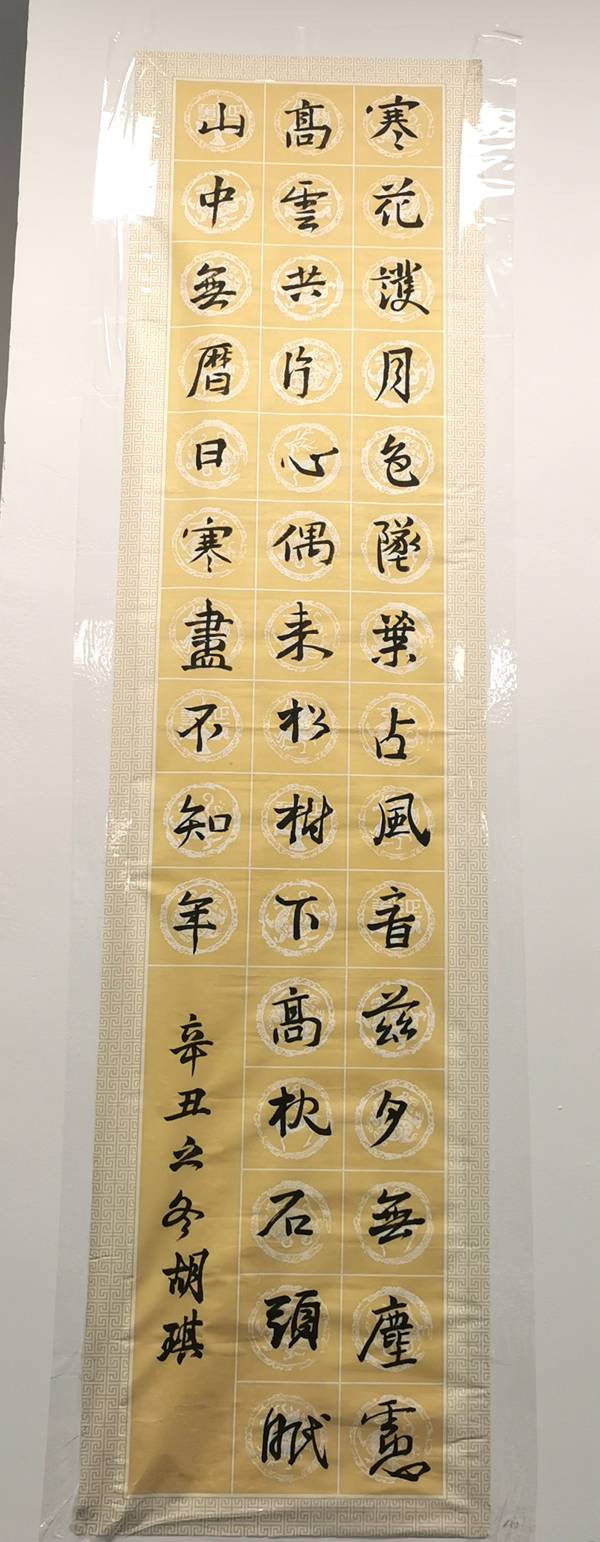 寒花護月色墜葉占風音茲夕無塵慮
高雲共片心偶来松樹下高枕石頭眠
山中無曆日寒盡不知年
辛丑之冬胡琪